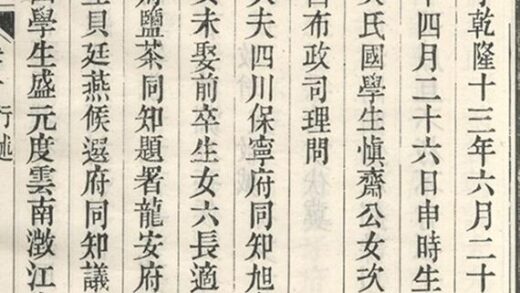 乾隆十三年六月二十
年四月二十六日申時生
氏國學生愼齋公女次
布政司理問
夫四川保寧府同知旭
未娶前卒生女六長適
鹽茶同知題署龍安府
貝廷燕候選府同知議
學生盛元度雲南澂江
行述